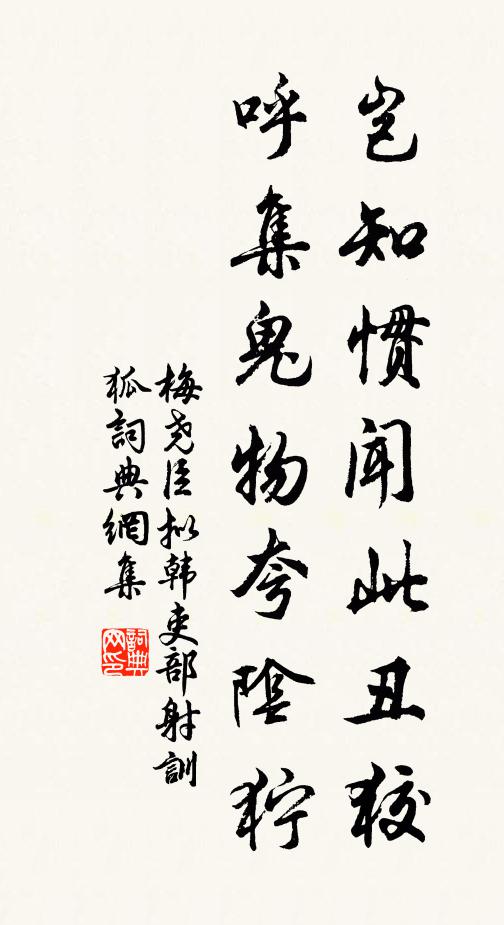 岂知惯闻此丑狡
呼集鬼物夸陰狞
梅尧臣拟韩吏部射訓
狐詞典網集
詞典
网印